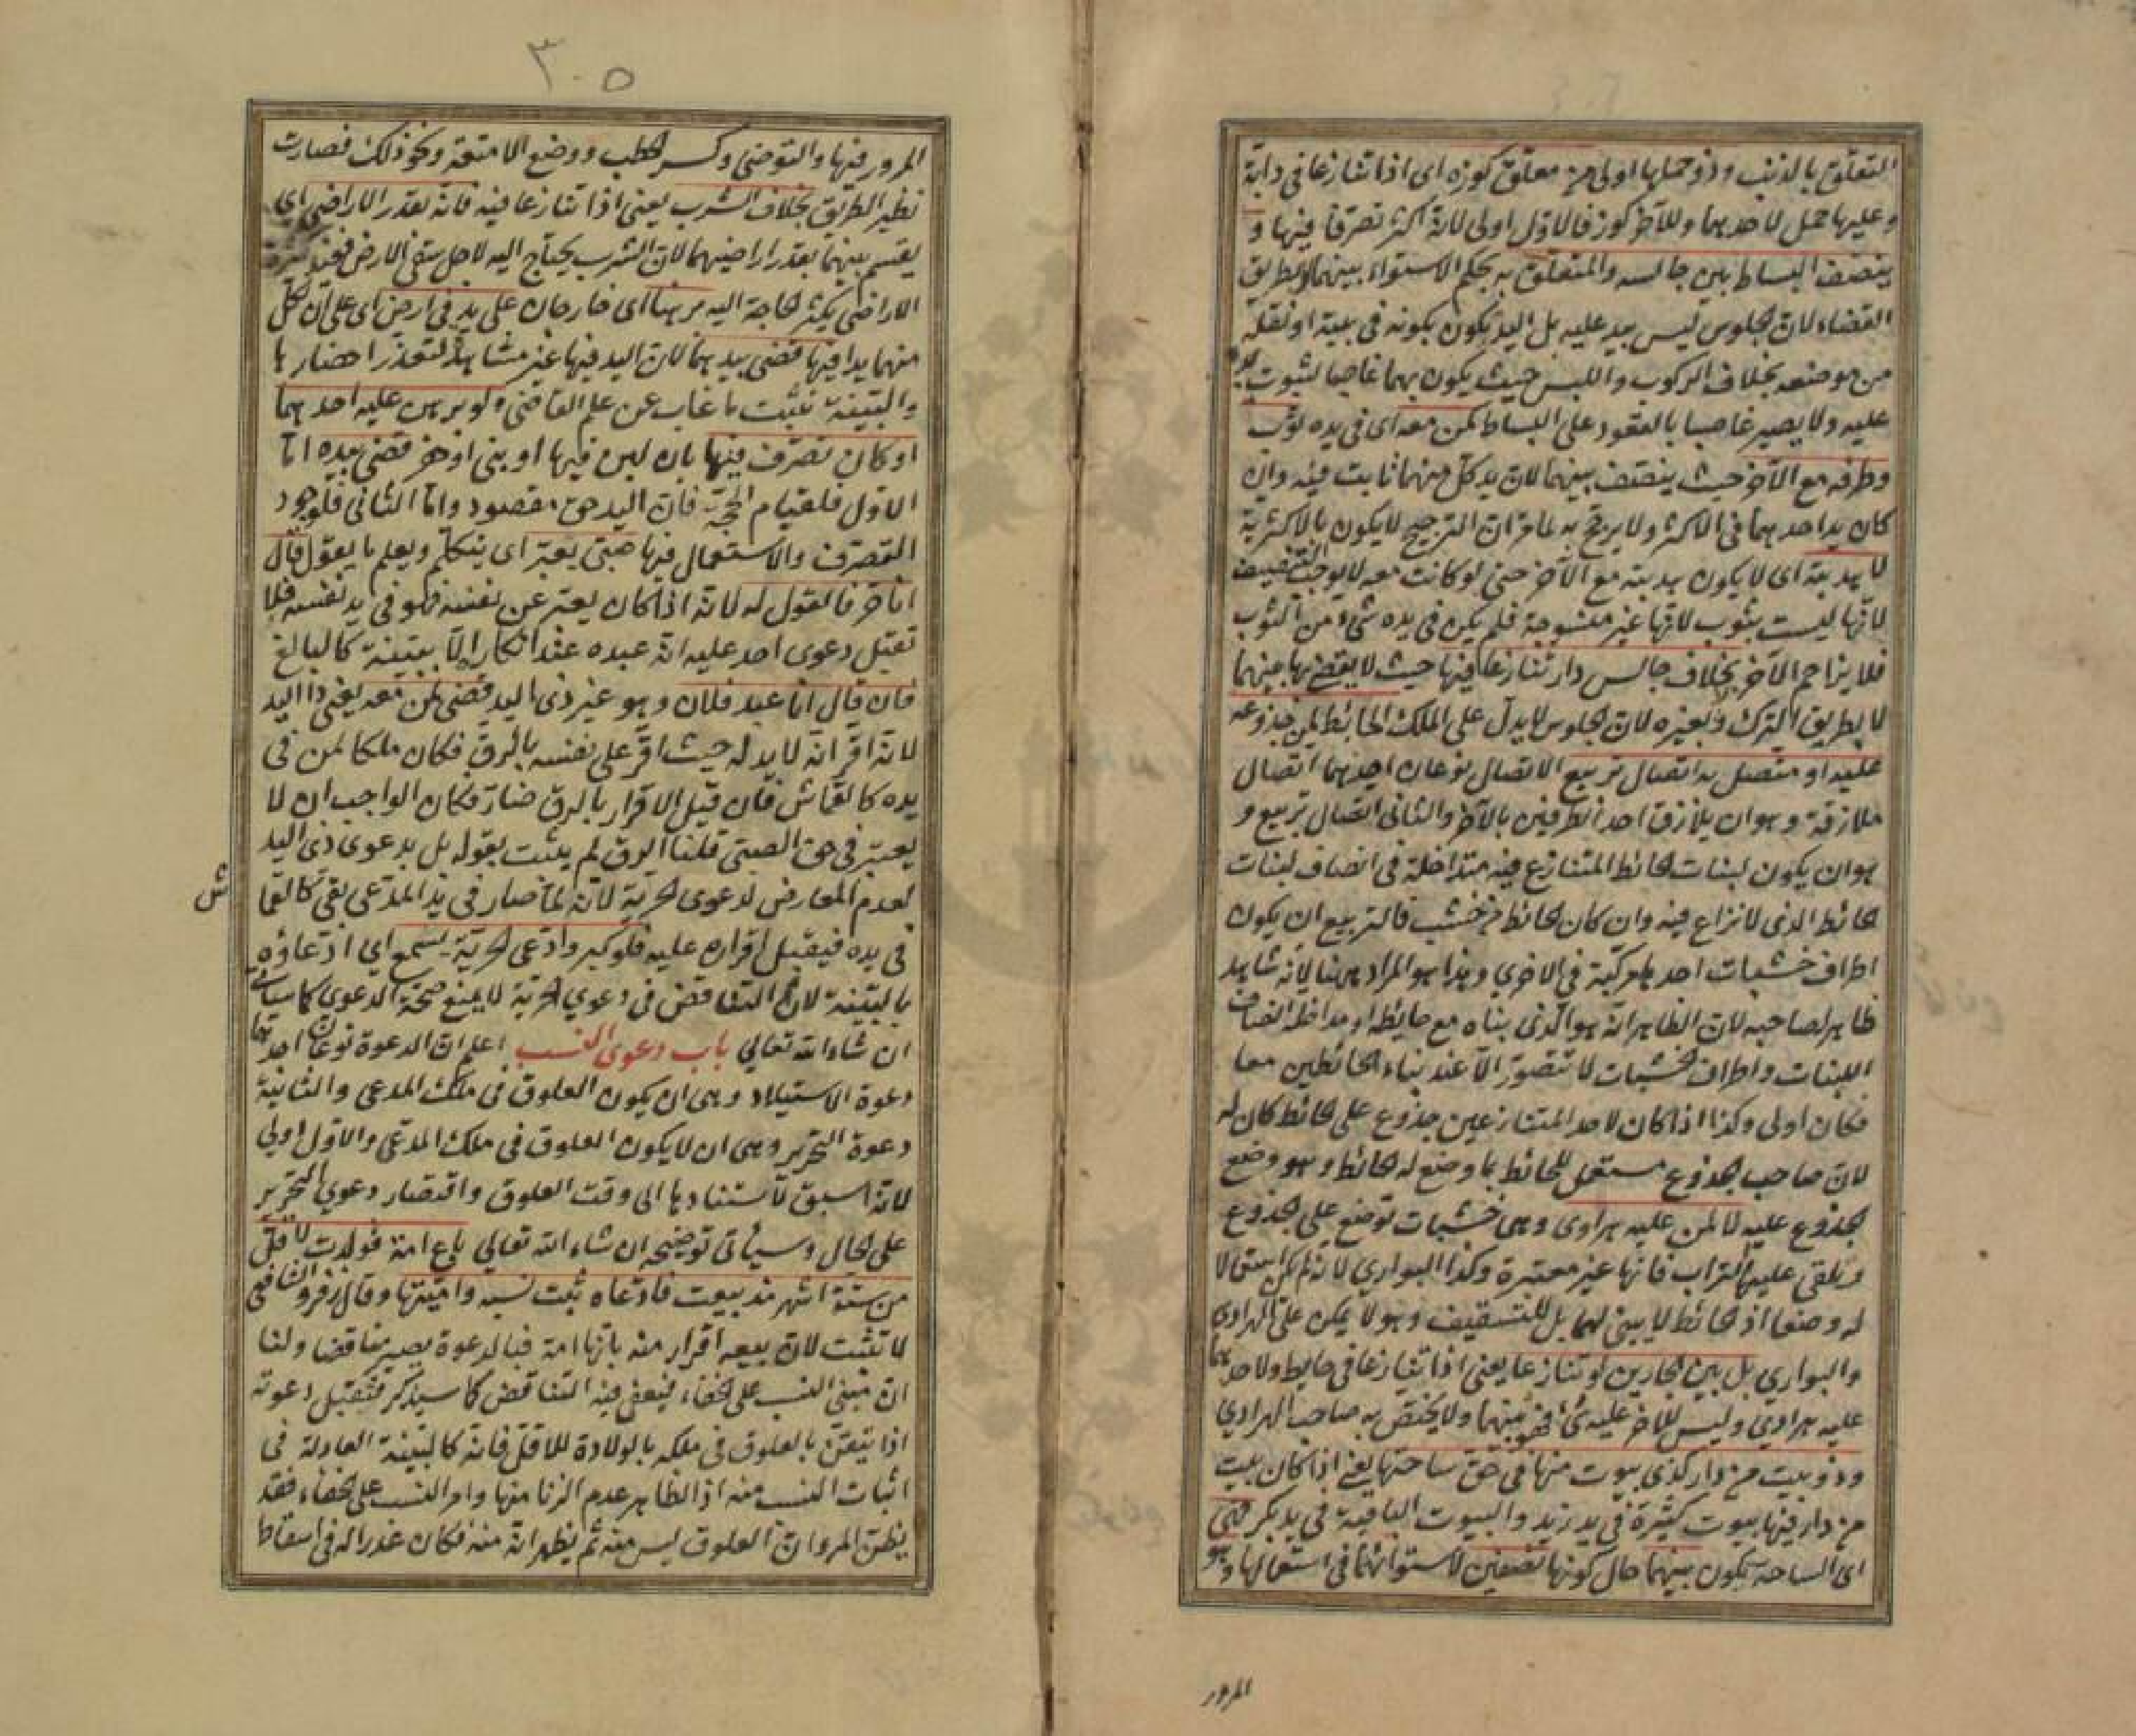 المتعلق بالذنب وذو حملها اولى من معلق كوزه اى اذا تنازعا فى دابة
وعليها حمل لاحدهما وللآخر كوز فالاول اولى لانه اكثر تصرفا فيها و
ينصف البساط بين جالسه والمتعلق به بحكم الاستواء بينهما لا بطريق
القضاء لان الجلوس ليس بيد عليه بل اليد يكون بكونه فى بيته او نقله
من موضعه بخلاف الركوب واللبس حيث يكون بهما غاصبا لثبوت يده
عليه ولا يصير غاصبا بالقعود على البساط كمن معه اى فى يده ثوب
وطرفه مع الآخر حيث ينصف بينهما لان يد كل منهما ثابت فيه وان
كان يد احدهما فى الاكثر ولا يرجح به لما مر ان الترجيح لا يكون بالاكثرية
لا هدبته اى لا يكون هدبته مع الآخر حتى لو كانت معه لا يوجب التنصيف
لانها ليست بثوب لانها غير منسوجة فلم يكن فى يده شئ من الثوب
فلا يزاحم الآخر بخلاف جالس دار تنازعا فيها حيث لا يقضى بها بينهما
لا بطريق الترك وبغيره لان الجلوس لا يدل على الملك الحائط لمن جذوعه
عليه او متصل به اتصال تربيع الاتصال نوعان احدهما اتصال
ملازقة وهو ان يلازق احد الطرفين بالآخر والثانى اتصال تربيع و
هو ان يكون لبنات الحائط المتنازع فيه متداخلة فى انصاف لبنات
الحائط الذى لا نزاع فيه وان كان الحائط من خشب فالتربيع ان يكون
اطراف خشبات احدهما مركبة فى الاخرى وهذا هو المراد ههنا لانه شاهد
ظاهر لصاحبه لان الظاهر انه هو الذى بناه مع حايطه اذ مداخلة انصاف
اللبنات واطراف الخشبات لا تتصور الا عند بناء الحائطين معا
فكان اولى وكذا اذا كان لاحد المتنازعين جذوع على الحائط كان له
لان صاحب الجذوع مستعمل للحائط بما وضع له الحائط وهو وضع
الجذوع عليه لا لمن عليه هرادى وهى خشبات توضع على الجذوع
ويلقى عليها التراب فانها غير معتبرة وكذا البوارى لانه لم يكن استعمالا
له وضعا اذ الحائط لا يبنى لهما بل للتسقيف وهو لا يمكن على الهرادى
والبوارى بل بين الجارين لو تنازعا يعنى اذا تنازعا فى حايط ولاحدهما
عليه هرادى وليس للآخر عليه شئ فهو بينهما ولا يختص به صاحب الهرادى
وذو بيت من دار كذى بيوت منها فى حق ساحتها يعنى اذا كان بيت
من دار فيها بيوت كثيرة فى يد زيد والبيوت الباقية فى يد بكر فهى
اى الساحة يكون بينهما حال كونها نصفين لاستوائهما فى استعمالها وهو
المرور
٣٠٥
المرور فيها والتوضى وكسر الحطب ووضع الامتعة ونحو ذلك فصارت
نظير الطريق بخلاف الشرب يعنى اذا تنازعا فيه فانه بقدر الاراضى اى
يقسم بينهما بقدر اراضيهما لان الشرب يحتاج اليه لاجل سقى الارض فعند كثرة
الاراضى يكثر الحاجة اليه برهنا اى خارجان على يد فى ارض اى على ان لكل
منهما يدا فيها قضى بيدهما لان اليد فيها غير مشاهد لتعذر احضارها
والبينة تثبت ما غاب عن علم القاضى ولو برهن عليه احدهما
او كان تصرف فيها بان لبن فيها او بنى او حفر قضى بيده اما
الاول فلقيام الحجة فان اليد حق مقصود واما الثانى فلوجود
التصرف والاستعمال فيها صبى يعبر اى يتكلم ويعلم ما يقول قال
انا حر فالقول له لانه اذا كان يعبر عن نفسه فهو فى يد نفسه فلا
تقبل دعوى احد عليه انه عبده عند انكاره الا ببينة كالبالغ
فان قال انا عبد فلان وهو غير ذى اليد قضى لمن معه يعنى ذا اليد
لانه اقر انه لا يد له حيث اقر على نفسه بالرق فكان ملكا لمن فى
يده كالقماش فان قيل الاقرار بالرق ضار فكان الواجب ان لا
يعتبر فى حق الصبى قلنا الرق لم يثبت بقوله بل بدعوى ذى اليد
لعدم المعارض لدعوى الحرية لانه لما صار فى يد المدعى بقى كالقما
ش
فى يده فيقبل اقراره عليه فلو كبر وادعى الحرية يسمع اى ادعاؤه
بالبينة لان التناقض فى دعوى الحرية لا يمنع صحة الدعوى كما سيأتى
ان شاء الله تعالى باب دعوى النسب اعلم ان الدعوة نوعان احدهما
دعوة الاستيلاد وهى ان يكون العلوق فى ملك المدعى والثانية
دعوة التحرير وهى ان لا يكون العلوق فى ملك المدعى والاول اولى
لانه اسبق لاستنادها الى وقت العلوق واقتصار دعوى التحرير
على الحال وسيأتى توضيحه ان شاء الله تعالى باع امة فولدت لاقل
من ستة اشهر مذ بيعت فادعاه ثبت نسبه واميتها وقال زفر والشافعى
لا تثبت لان بيعه اقرار منه بانها امة فبالدعوة يصير مناقضا ولنا
ان مبنى النسب على الخفاء فيعفى فيه التناقض كما سيذكر فتقبل دعوته
اذا تيقن بالعلوق فى ملكه بالولادة للاقل فانه كالبينة العادلة فى
اثبات النسب منه اذ الظاهر عدم الزنا منها وامر النسب على الخفاء فقد
يظن المرء ان العلوق ليس منه ثم يظهر انه منه فكان عذرا له فى اسقاط